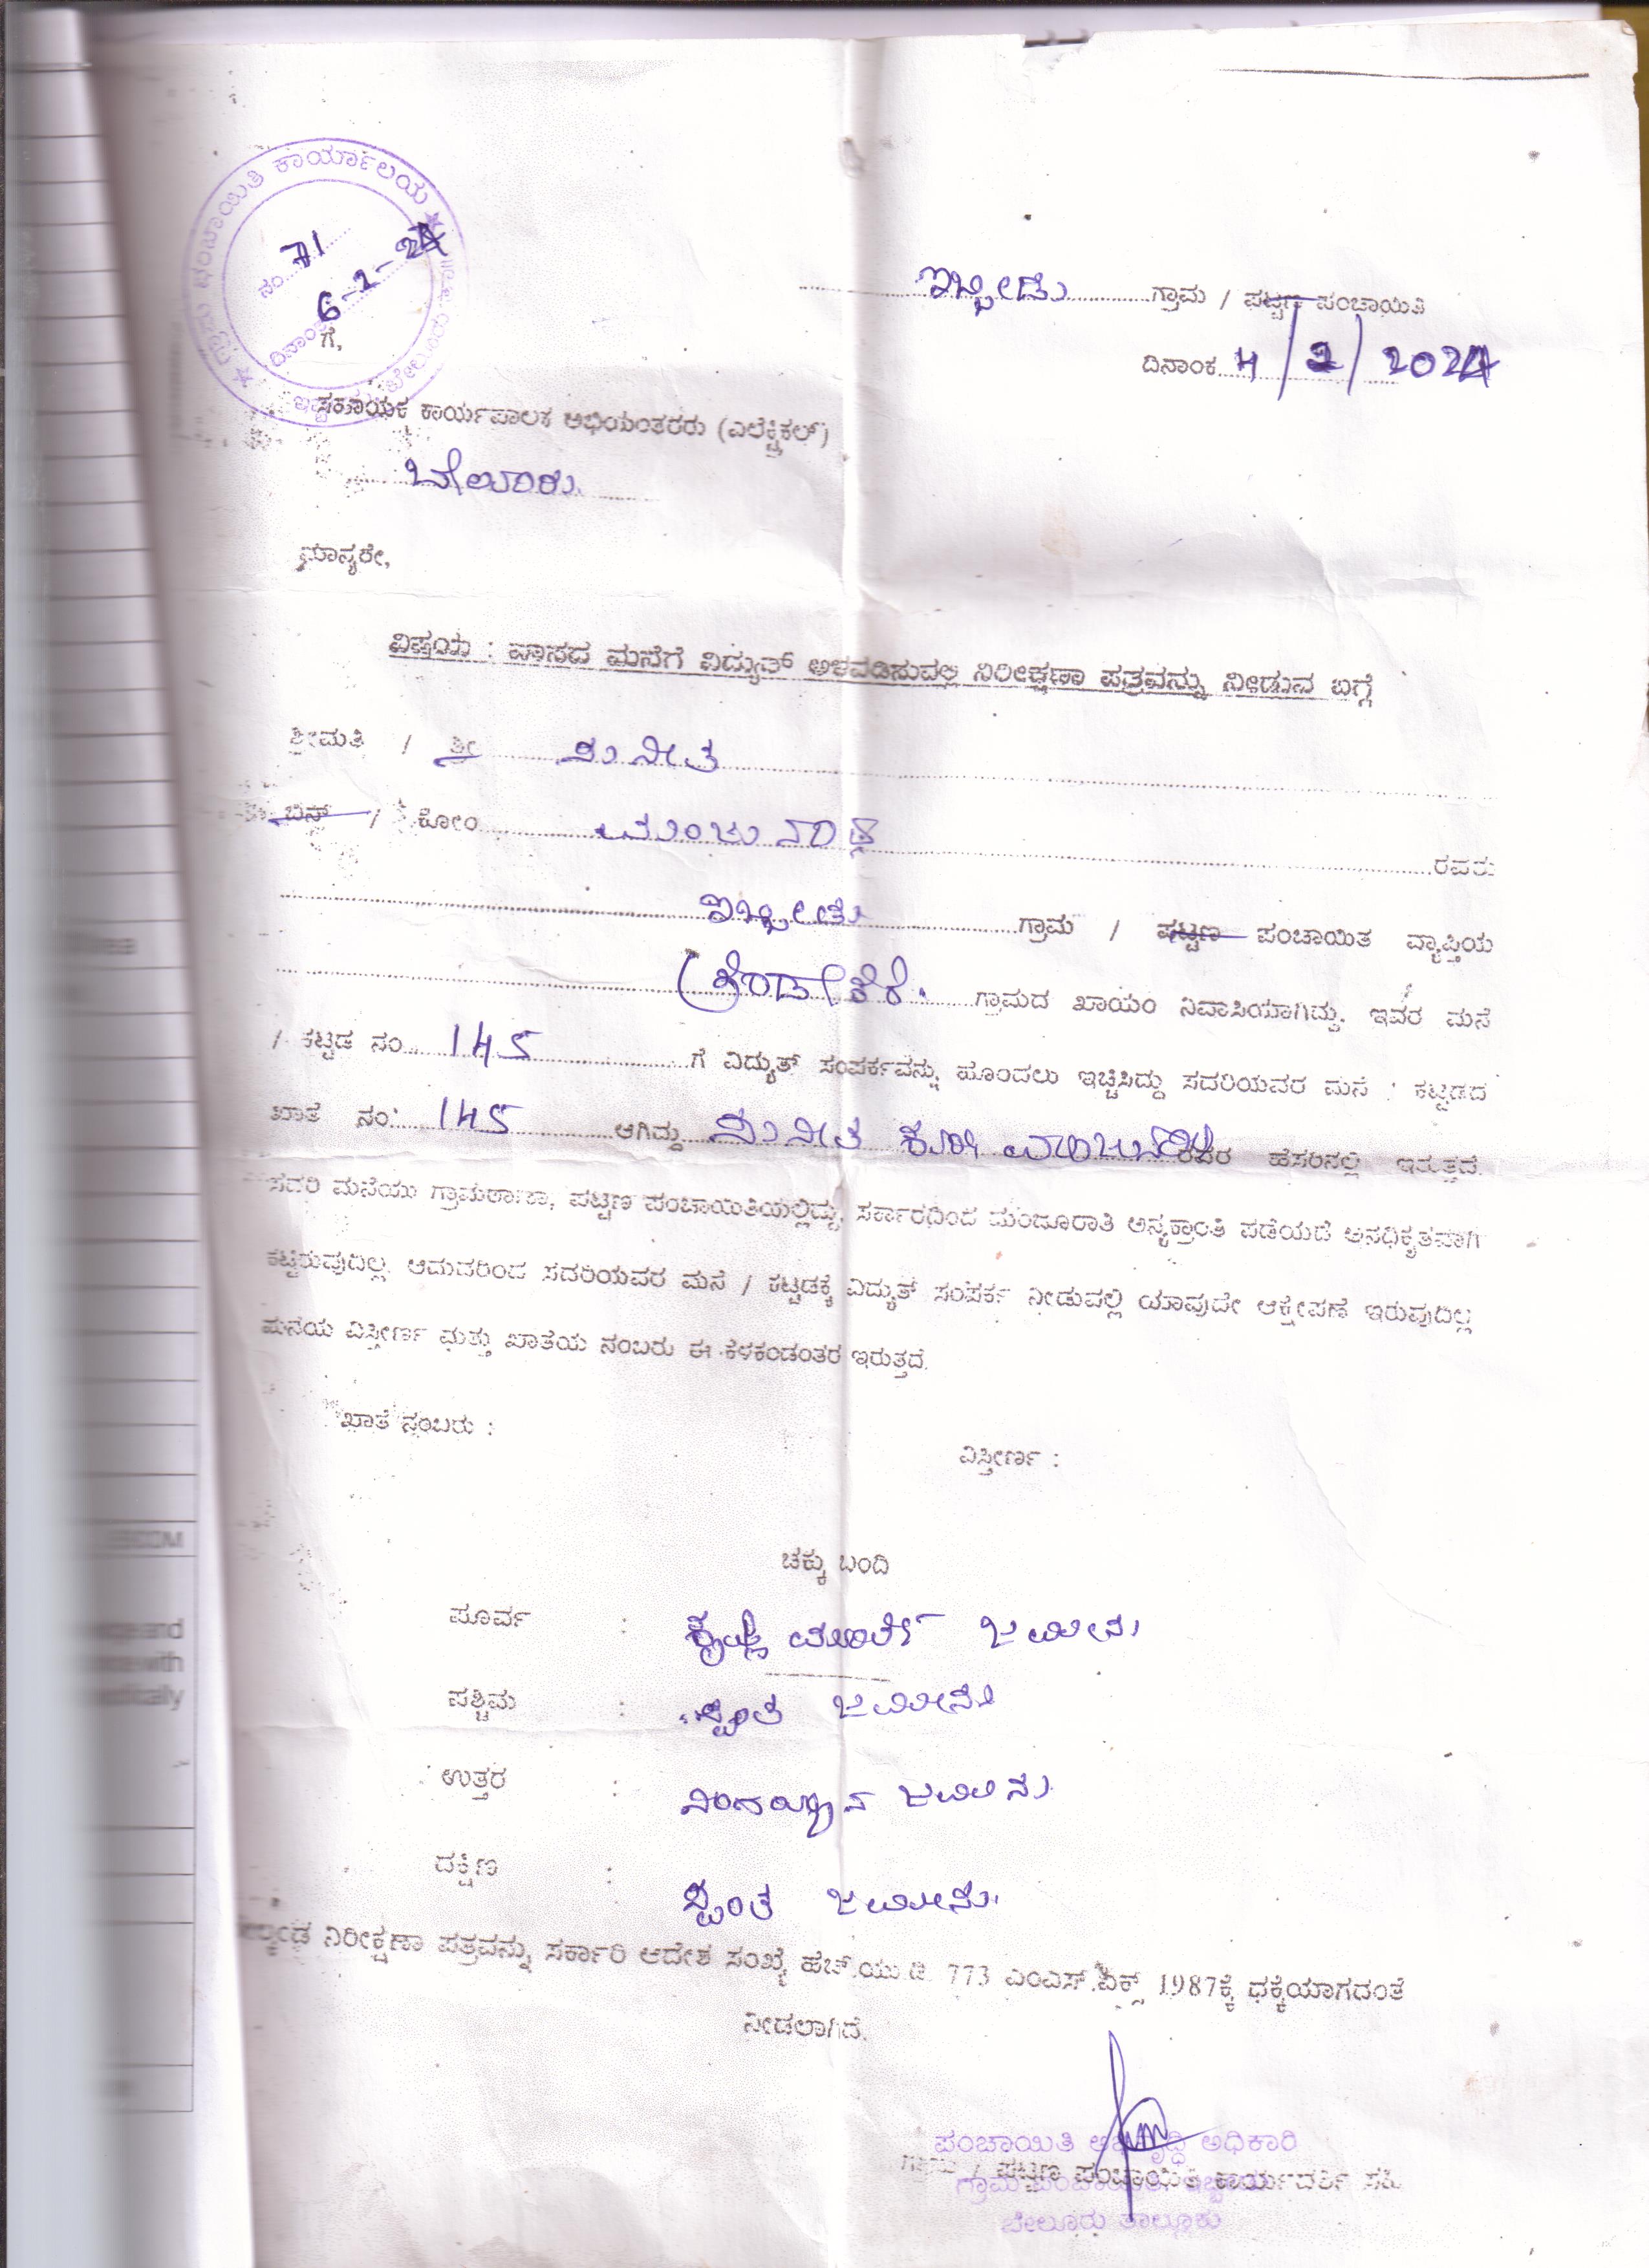 ಗ್ರಾಮ ಪಂಚಾಯಿತಿ ಕಾರ್ಯಾಲಯ
ನಂ. 71
ದಿನಾಂಕ 6-2-24
ಇಬ್ಬೀಡು ಗ್ರಾಮ / ಪಟ್ಟಣ ಪಂಚಾಯಿತಿ
ದಿನಾಂಕ 4/2/2024
ಗೆ,
ಸಹಾಯಕ ಕಾರ್ಯಪಾಲಕ ಅಭಿಯಂತರರು (ಎಲೆಕ್ಟ್ರಿಕಲ್)
ಬೇಲೂರು.
ಮಾನ್ಯರೇ,
ವಿಷಯ : ವಾಸದ ಮನೆಗೆ ವಿದ್ಯುತ್ ಅಳವಡಿಸುವಲ್ಲಿ ನಿರೀಕ್ಷಣಾ ಪತ್ರವನ್ನು ನೀಡುವ ಬಗ್ಗೆ
ಶ್ರೀಮತಿ / ಶ್ರೀ ಸುನೀತ
ಬಿನ್ / ಕೋಂ ಮಂಜುನಾಥ ರವರು
ಇಬ್ಬೀಡು ಗ್ರಾಮ / ಪಟ್ಟಣ ಪಂಚಾಯಿತ ವ್ಯಾಪ್ತಿಯ
ಗ್ರಾಮದ ಖಾಯಂ ನಿವಾಸಿಯಾಗಿದ್ದು, ಇವರ ಮನೆ
/ ಕಟ್ಟಡ ನಂ. 145 ಗೆ ವಿದ್ಯುತ್ ಸಂಪರ್ಕವನ್ನು ಹೊಂದಲು ಇಚ್ಚಿಸಿದ್ದು ಸದರಿಯವರ ಮನೆ / ಕಟ್ಟಡದ
ಖಾತೆ ನಂ. 145 ಆಗಿದ್ದು ಸುನೀತ ಕೋಂ ಮಂಜುನಾಥ ರವರ ಹೆಸರಿನಲ್ಲಿ ಇರುತ್ತದೆ.
ಸದರಿ ಮನೆಯು ಗ್ರಾಮಠಾಣಾ, ಪಟ್ಟಣ ಪಂಚಾಯಿತಿಯಲ್ಲಿದ್ದು, ಸರ್ಕಾರದಿಂದ ಮಂಜೂರಾತಿ ಅನ್ಯಕ್ರಾಂತಿ ಪಡೆಯದೆ ಅನಧಿಕೃತವಾಗಿ
ಕಟ್ಟಿರುವುದಿಲ್ಲ. ಆದುದರಿಂದ ಸದರಿಯವರ ಮನೆ / ಕಟ್ಟಡಕ್ಕೆ ವಿದ್ಯುತ್ ಸಂಪರ್ಕ ನೀಡುವಲ್ಲಿ ಯಾವುದೇ ಆಕ್ಷೇಪಣೆ ಇರುವುದಿಲ್ಲ
ಮನೆಯ ವಿಸ್ತೀರ್ಣ ಮತ್ತು ಖಾತೆಯ ನಂಬರು ಈ ಕೆಳಕಂಡಂತರ ಇರುತ್ತದೆ.
ಖಾತೆ ನಂಬರು :
ವಿಸ್ತೀರ್ಣ :
ಚಕ್ಕು ಬಂದಿ
ಪೂರ್ವ : ಕೃಷ್ಣಮೂರ್ತಿ ಜಮೀನು
ಪಶ್ಚಿಮ : ಸ್ವಂತ ಜಮೀನು
ಉತ್ತರ : ಜಮೀನು
ದಕ್ಷಿಣ : ಸ್ವಂತ ಜಮೀನು.
ನಿರೀಕ್ಷಣಾ ಪತ್ರವನ್ನು ಸರ್ಕಾರಿ ಆದೇಶ ಸಂಖ್ಯೆ ಹೆಚ್.ಯು.ಡಿ. 773 ಎಂಎಸ್.ಎಕ್ಸ್ 1987ಕ್ಕೆ ಧಕ್ಕೆಯಾಗದಂತೆ
ನೀಡಲಾಗಿದೆ.
ಪಂಚಾಯಿತಿ ಅಭಿವೃದ್ಧಿ ಅಧಿಕಾರಿ
ಗ್ರಾಮ / ಪಟ್ಟಣ ಪಂಚಾಯಿತಿ ಕಾರ್ಯದರ್ಶಿ ಸಹಿ
ಗ್ರಾಮ ಪಂಚಾಯಿತಿ ಇಬ್ಬೀಡು
ಬೇಲೂರು ತಾಲ್ಲೂಕು